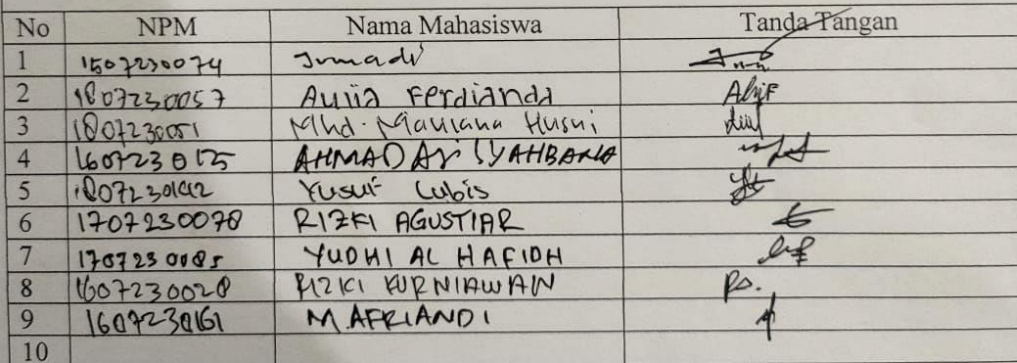 No NPM Nama Mahasiswa Tanda Tangan
1 1507230074 Jumadi
2 1807230057 Aulia Ferdianda Alif
3 1807230051 Mhd. Maulana Husni
4 1607230125 AHMAD ARI SYAHBANA
5 1807230142 Yusuf Lubis
6 1707230078 RIZKI AGUSTIAR
7 1707230085 YUDHI AL HAFIDH
8 1607230028 RIZKI KURNIAWAN
9 1607230161 M.AFRIANDI
10